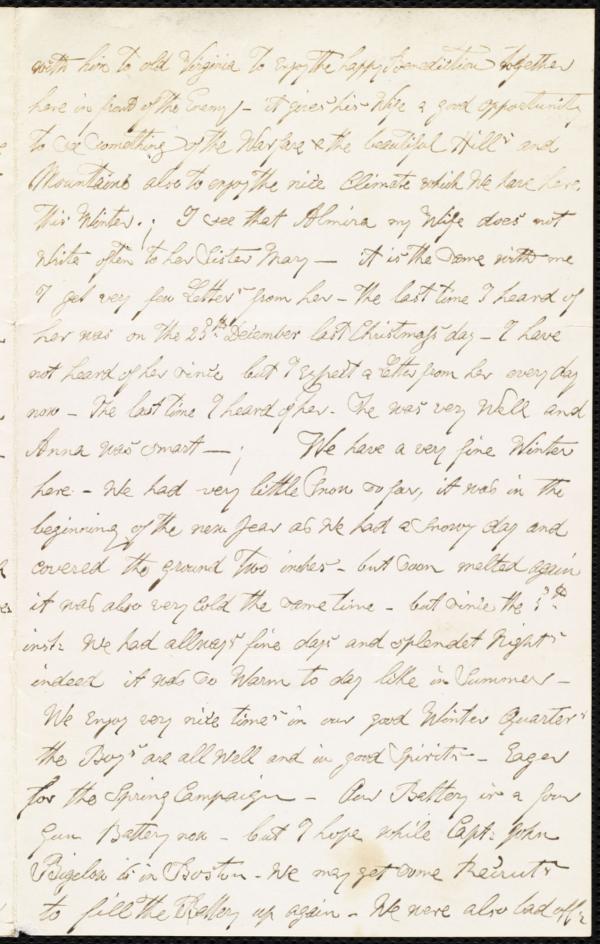 with him to old Virginia to enjoy the happy Benediction together
here in front of the Enemy - it gives his Wife a good opportunity
to see something of the Warfare & the beautiful Hills and
Mountains also to enjoy the nice Climate which We have here
this Winter.; I see that Almira my Wife does not
write often to her Sister Mary — it is the same with me
I get very few Letters from her - the last time I heard of
her was on the 25th December last Christmass day - I have
not heard of her since but I Expect a Letter from her every day
now - The last time I heard of her. She was very Well and
Anna was smart —; We have a very fine Winter
here - We had very little Snow so far, it was in the
beginning of the new Year as We had a Snowy day and
covered the ground Two inches - but soon melted again
it was also very Cold the same time - but since the 5th
inst: We had allways fine days and splendet Nights
indeed it was so Warm to day like in Summer -
We Enjoy very nice times in our good Winter Quarters
the Boys are all Well and in good Spirits - Eager
for the Spring Campaign - Our Battery is a four
Gun Battery now - but I hope while Capt: John
Bigelow is in Boston - We may get some Recruits
to fill the Battery up again - We were also bad off: